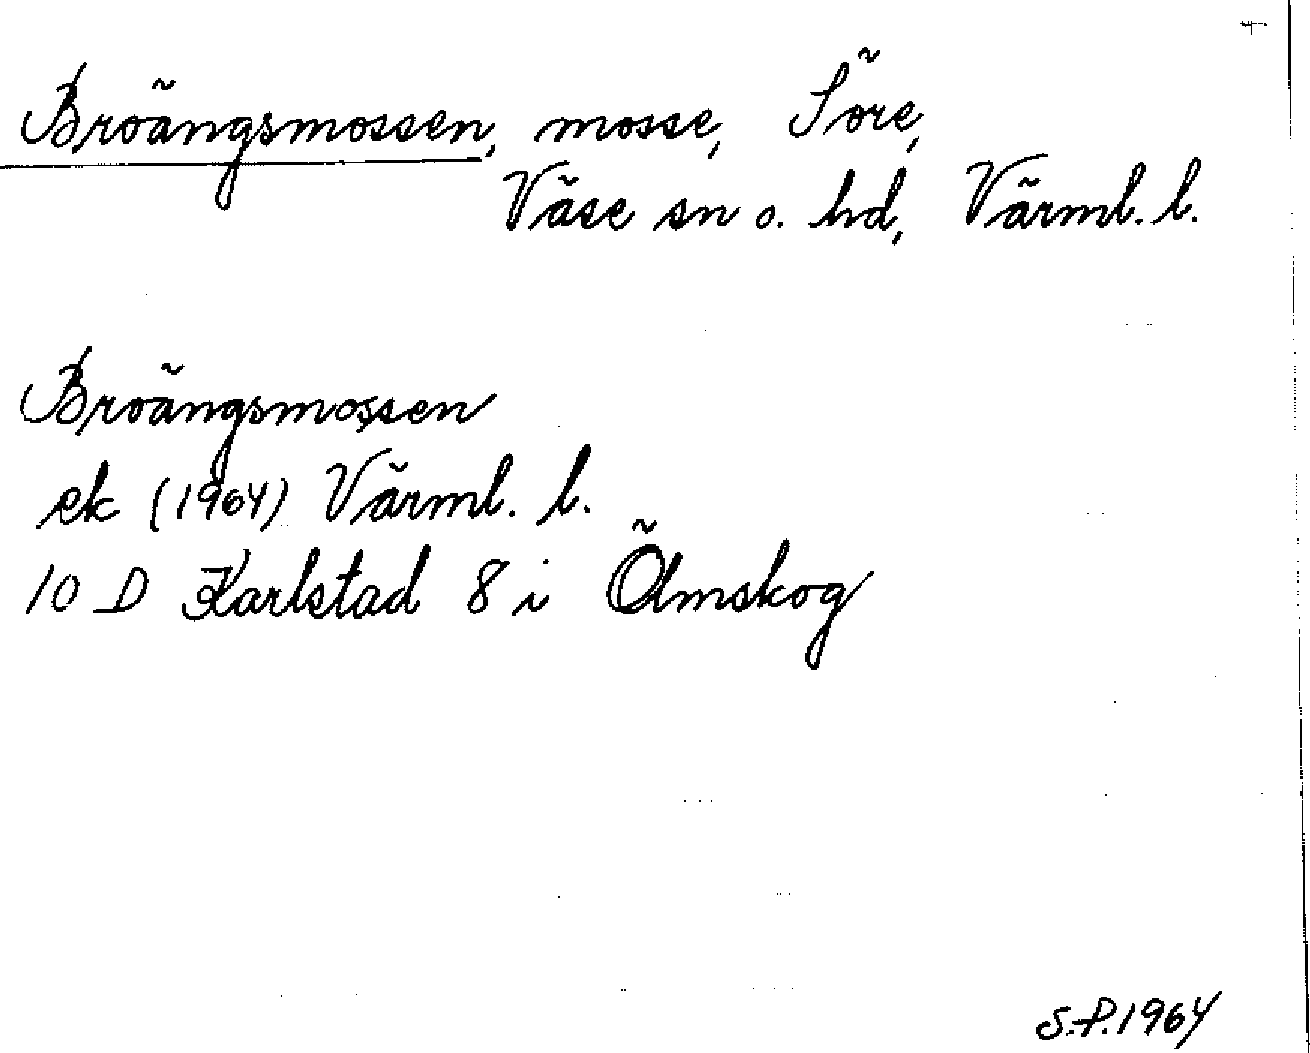 Broängsmossen, mosse, Söre,
Väse sn o. hd, Värml. l.
Broängsmossen
ek (1964) Värml. l.
10 D Karlstad 8 i Ölmskog
S.P. 1964